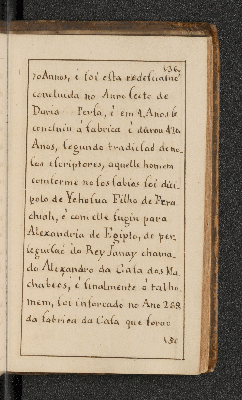 136.
70 Annos, é foi esta redeficasaõ
concluida no Anno Sexto de
Dario Persa, é em 4, Anos Se
concluiu a fabrica é durou 420
Anos, Segundo tradiçaõ de no-
Sos escriptores, aquelle homem
comforme nosos Sabios foi disi-
polo de Yehosua Filho de Pera
chioh, é com elle fugiu para
Alexandria de Egipto, de per-
seguisaõ do Rey Janay chama
do Alexandro da Casa dos Ma
chabeos, é finalmente o tal ho
mem, foi inforcado no Ano 288
da fabrica da Casa que foraõ